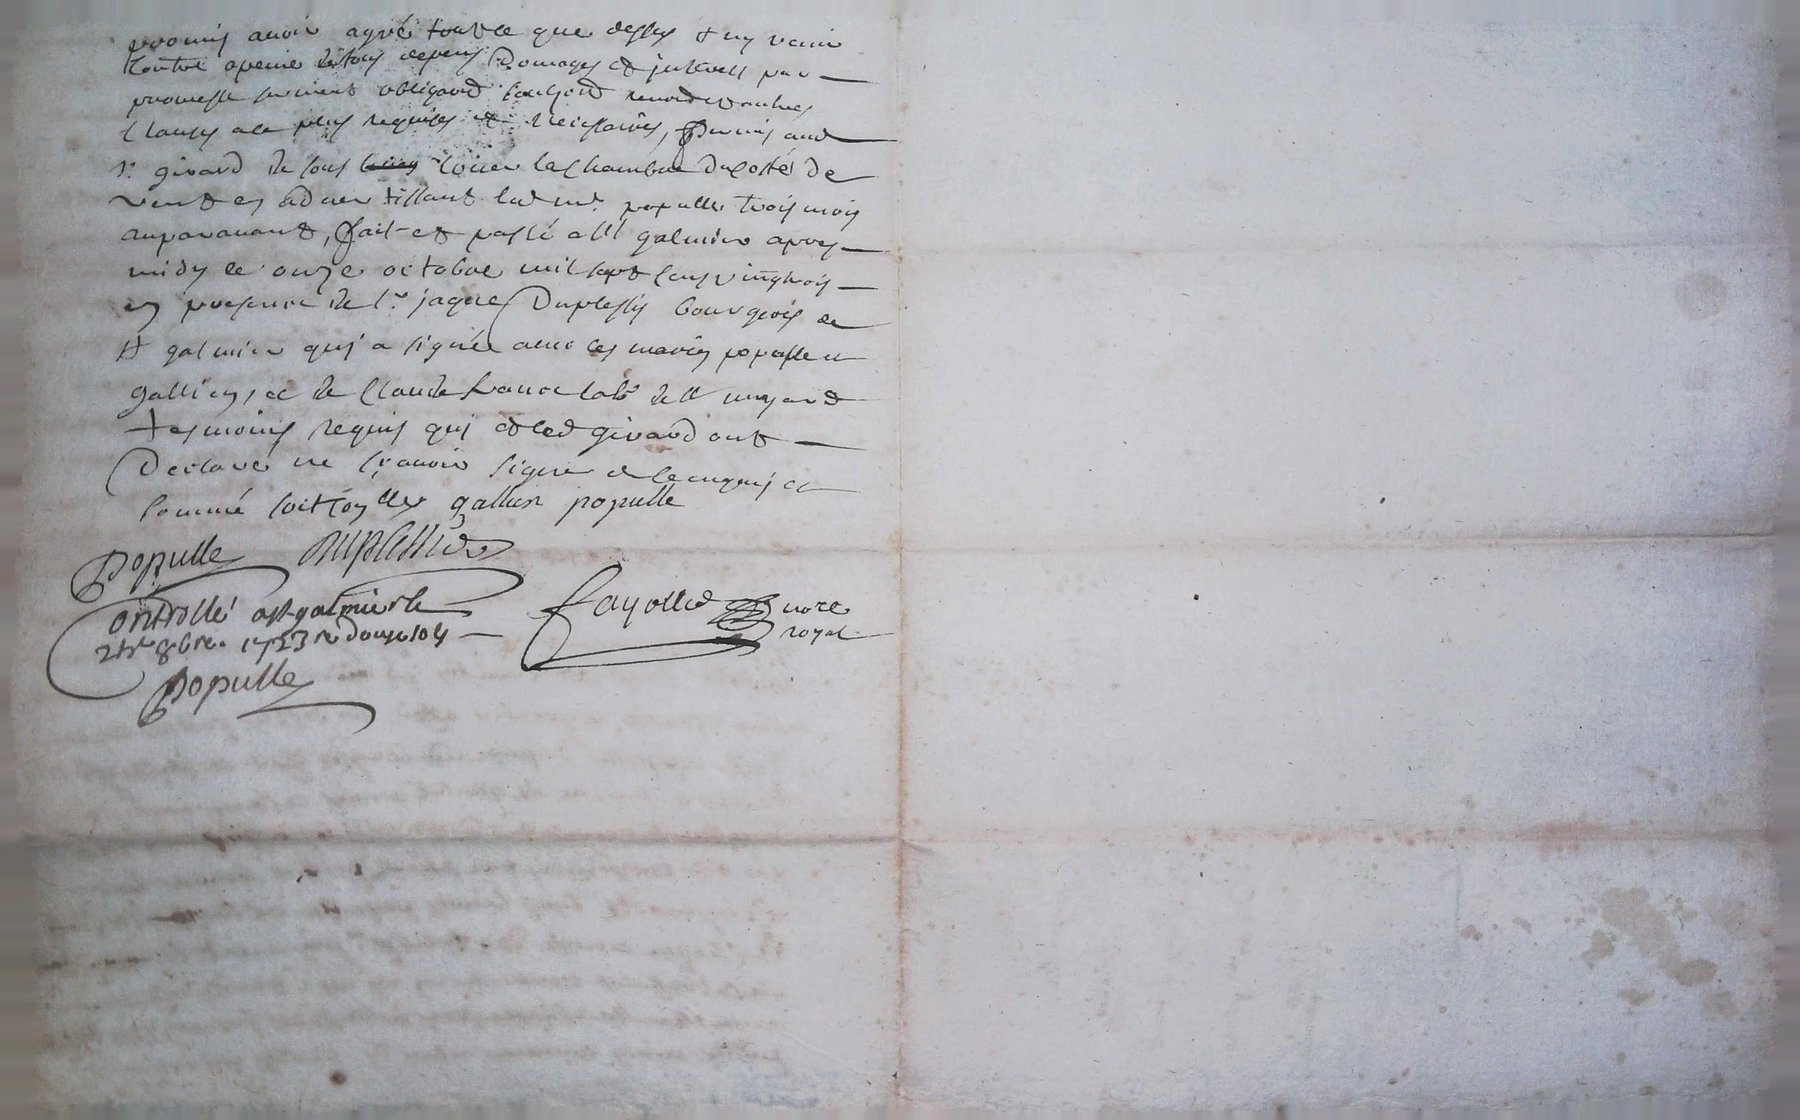 promis avoir agréé tout ce que dessus et ny venir
contre a peine de tous depens domages et interest par
promesse serment obligaõn soubzõn renonõn et autres
clauses a ce plus requises et necessaires, permis aud
sr girard de sous louer la chambre du costé de
vent en advertissant lad me populle trois mois
auparavant, fait et passé a st galmier apres
midy le onze octobre mil sept cens vingtrois
en presence de sr jaque Duplessis bourgeois de
st galmier qui a signé avec les mariés populle et
gallien, et de Claude de st
tesmoins requis qui et led girard ont
Declaré ne sçavoir signer de ce enquis et
sommé gallien populle
populle Duplessis
Controllé a st galmier le
8bre 1723 R douze sols
fayolle nore
royal
populle